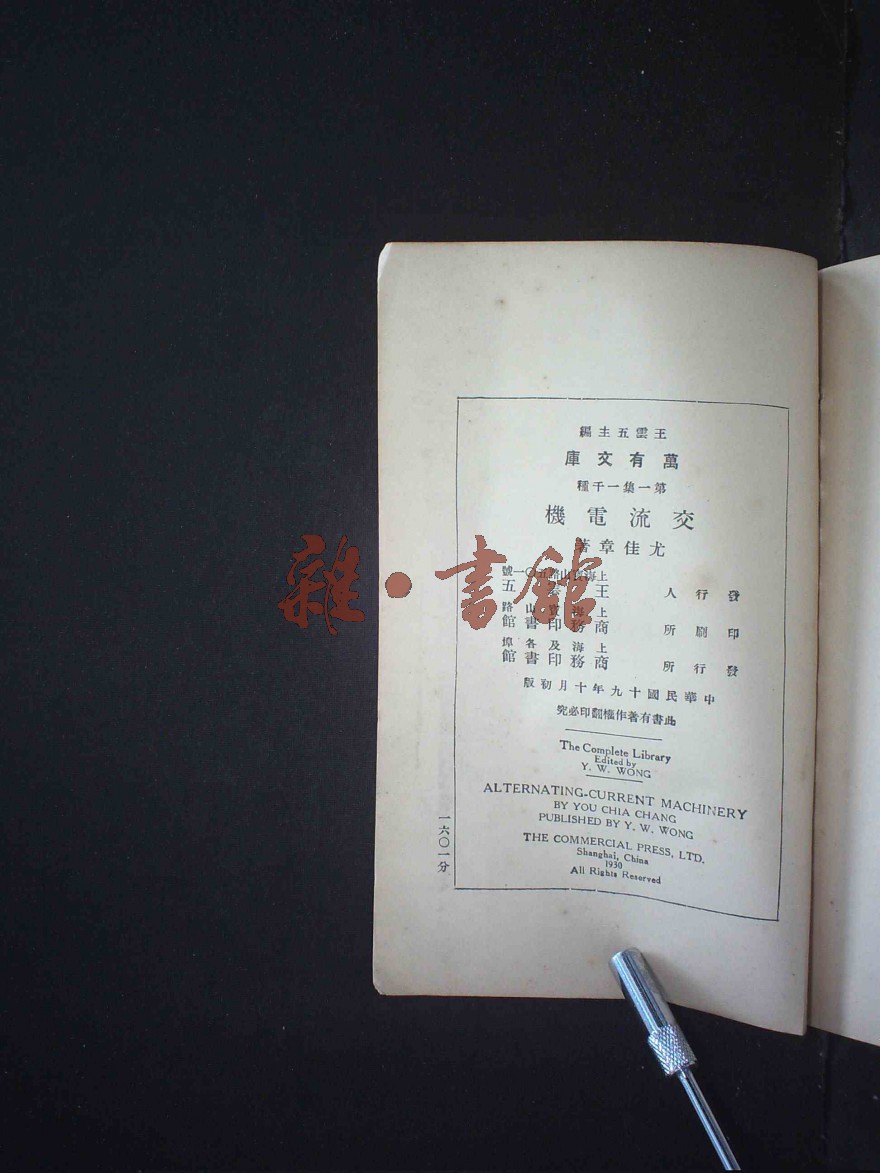 王雲五主編
萬有文庫
第一集一千種
交流電機
尤佳章著
上海 山路五〇一號
發行人 王 五
上海寶山路
印刷所 商務印書館
上海及各埠
發行所 商務印書館
中華民國十九年十月初版
此書有著作權翻印必究
The Complete Library
Edited by
Y. W. WONG
ALTERNATING-CURRENT MACHINERY
BY YOU CHIA CHANG
PUBLISHED BY Y. W. WONG
THE COMMERCIAL PRESS, LTD.
Shanghai, China
1930
All Rights Reserved
一六〇一分
雜·書館